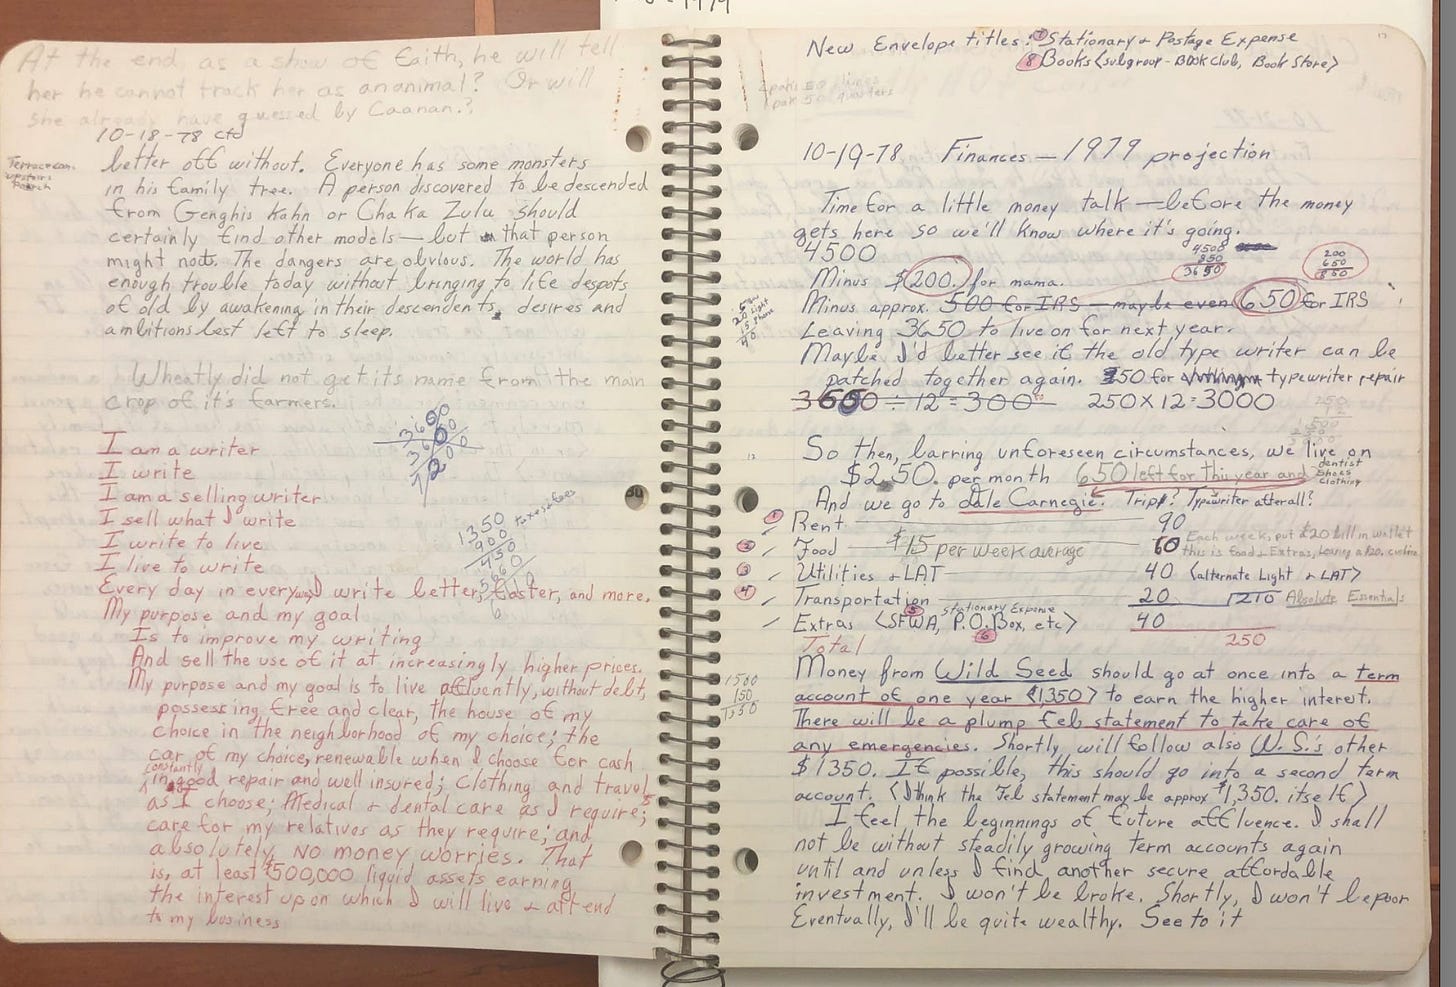 At the end, as a show of faith, he will tell
her he cannot track her as an animal? Or will
she already have guessed by Caanan?
10-18-78 ctd
Terrace can.
upstairs
Porch
better off without. Everyone has some monsters
in his family tree. A person discovered to be descended
from Genghis Kahn or Chaka Zulu should
certainly find other models — but that person
might not. The dangers are obvious. The world has
enough trouble today without bringing to life despots
of old by awakening in their descendents, desires and
ambitions best left to sleep.
Wheatly did not get its name from the main
crop of it's farmers.
I am a writer
I write
I am a selling writer
I sell what I write
I write to live
I live to write
Every day in every way I write better, faster, and more.
My purpose and my goal
Is to improve my writing
And sell the use of it at increasingly higher prices.
My purpose and my goal is to live affluently, without debt,
possessing free and clear, the house of my
choice in the neighborhood of my choice; the
car of my choice, renewable when I choose for cash
constantly
in good repair and well insured; clothing and travel
as I choose; Medical + dental care as I require;
care for my relatives as they require; and
absolutely NO money worries. That
is, at least $500,000 liquid assets earning
the interest upon which I will live + attend
to my business
1350 taxes + fees
900
450
New Envelope titles: 7 Stationary + Postage Expense
8 Books <subgroup - Book Club, Book Store>
10-19-78 Finances — 1979 projection
Time for a little money talk — before the money
gets here so we'll know where it's going.
4500
4500
850
3650
200
650
850
Minus $200. for mama.
Minus approx. 500 for IRS — maybe even 650 for IRS
Leaving 3650 to live on for next year.
Maybe I'd better see if the old type writer can be
patched together again. 50 for typewriter repair
3600 ÷ 12 = 300 250 X 12 = 3000
So then, barring unforeseen circumstances, we live on
$250. per month 650 left for this year and dentist
shoes
clothing
And we go to Dale Carnegie. Trip? Typewriter after all?
1 Rent 90
2 Food $15 per week average 60 Each week, put $20 bill in wallet
this is food + Extras,
3 Utilities + LAT 40 <alternate Light + LAT>
4 Transportation 20 210 Absolute Essentials
5 Stationary Expense
Extras <SFWA, P.O. Box, etc> 40
6
Total 250
1500
150
1350
Money from Wild Seed should go at once into a term
account of one year <1350> to earn the higher interest.
There will be a plump Feb statement to take care of
any emergencies. Shortly, will follow also W.S.'s other
$1350. If possible, this should go into a second term
account. <I think the Feb statement may be approx $1,350. itself>
I feel the beginnings of future affluence. I shall
not be without steadily growing term accounts again
until and unless I find another secure affordable
investment. I won't be broke. Shortly, I won't be poor
Eventually, I'll be quite wealthy. See to it